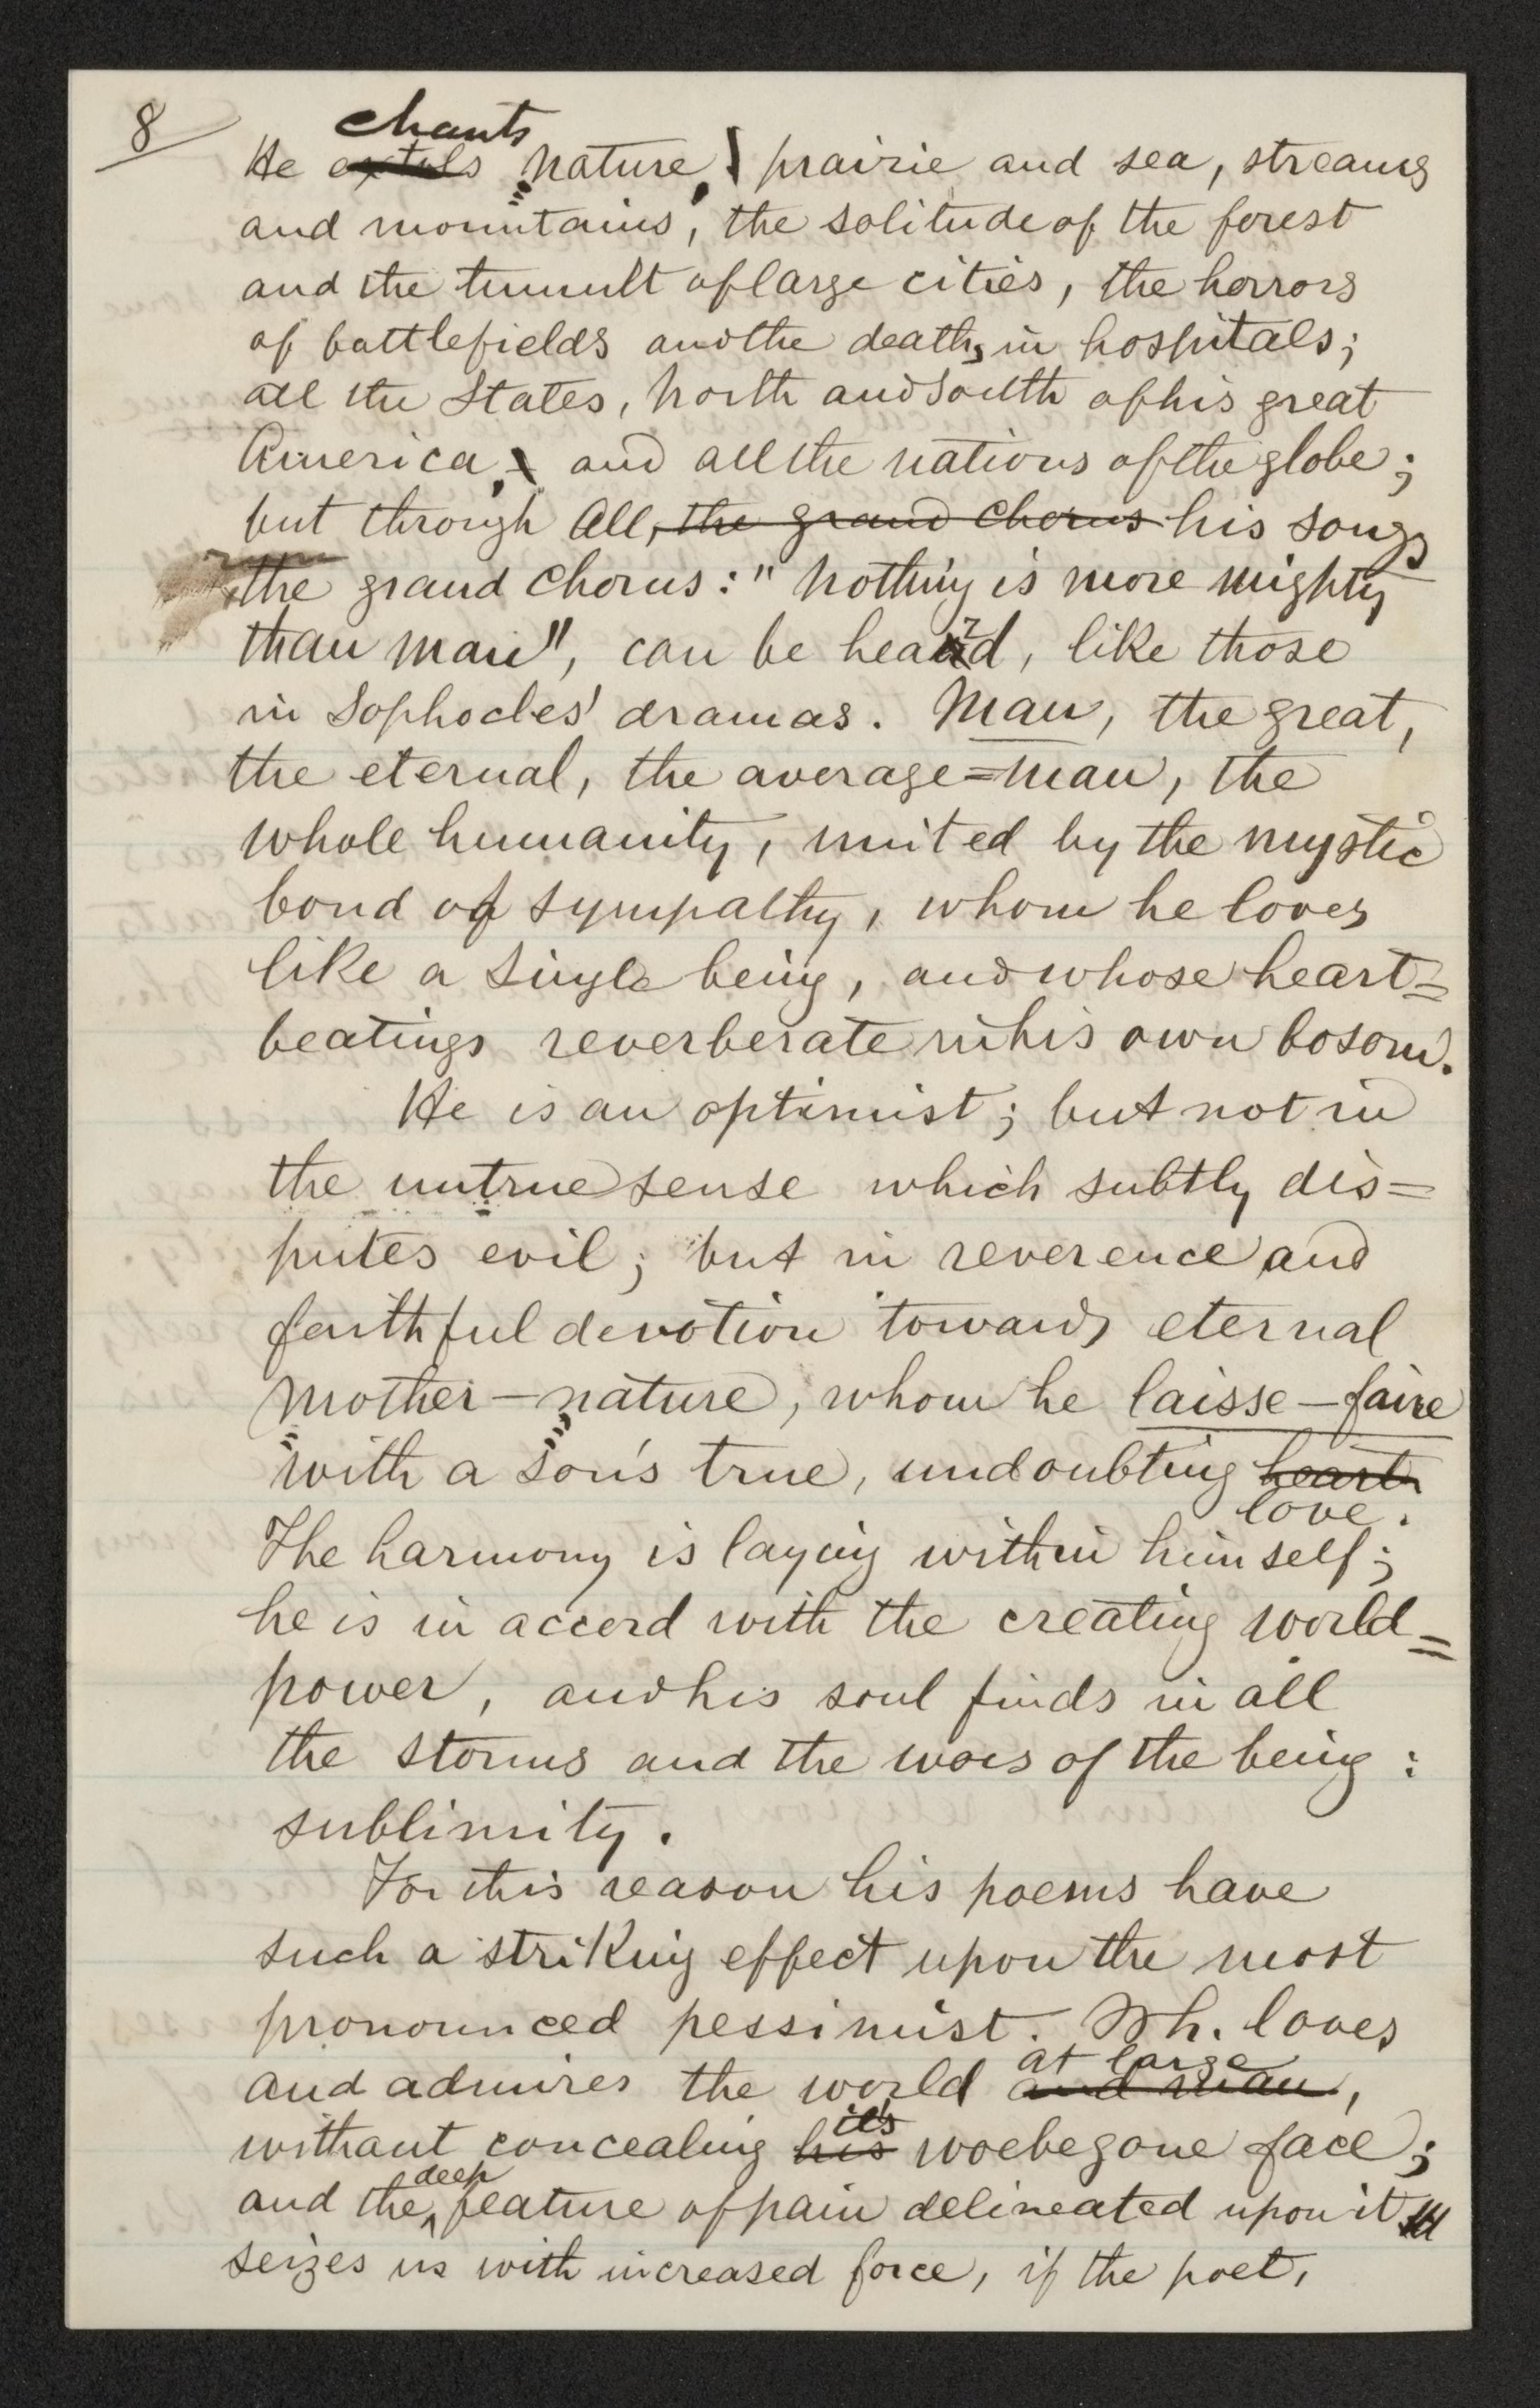 8
chants
He extols nature, prairie and sea, streams
and mountains, the solitude of the forest
and the tumult of large cities, the horrors
of battlefields and the deaths in hospitals;
all the States, North and South of his great
America, and all the nations of the globe;
but through all, the grand chorus his songs
the grand chorus: "Nothing is more mighty
than man", can be heard, like those
in Sophocles' dramas. Man, the great,
the eternal, the average=man, the
whole humanity, united by the mystic
bond of sympathy, whom he loves
like a single being, and whose heart=
beatings reverberate in his own bosom.
He is an optimist; but not in
the untrue sense which subtly dis=
putes evil; but in reverence and
faithful devotion towards eternal
mother-nature, whom he laisse-faire
with a son's true, undoubting heart
love.
The harmony is laying within himself;
he is in accord with the creating world=
power, and his soul finds in all
the storms and the woes of the being:
sublimity.
For this reason his poems have
such a striking effect upon the most
pronounced pessimist. Wh. loves
at large
and admires the world and man,
it's
without concealing his woebegone face;
deep
and the feature of pain delineated upon it
seizes us with increased force, if the poet,